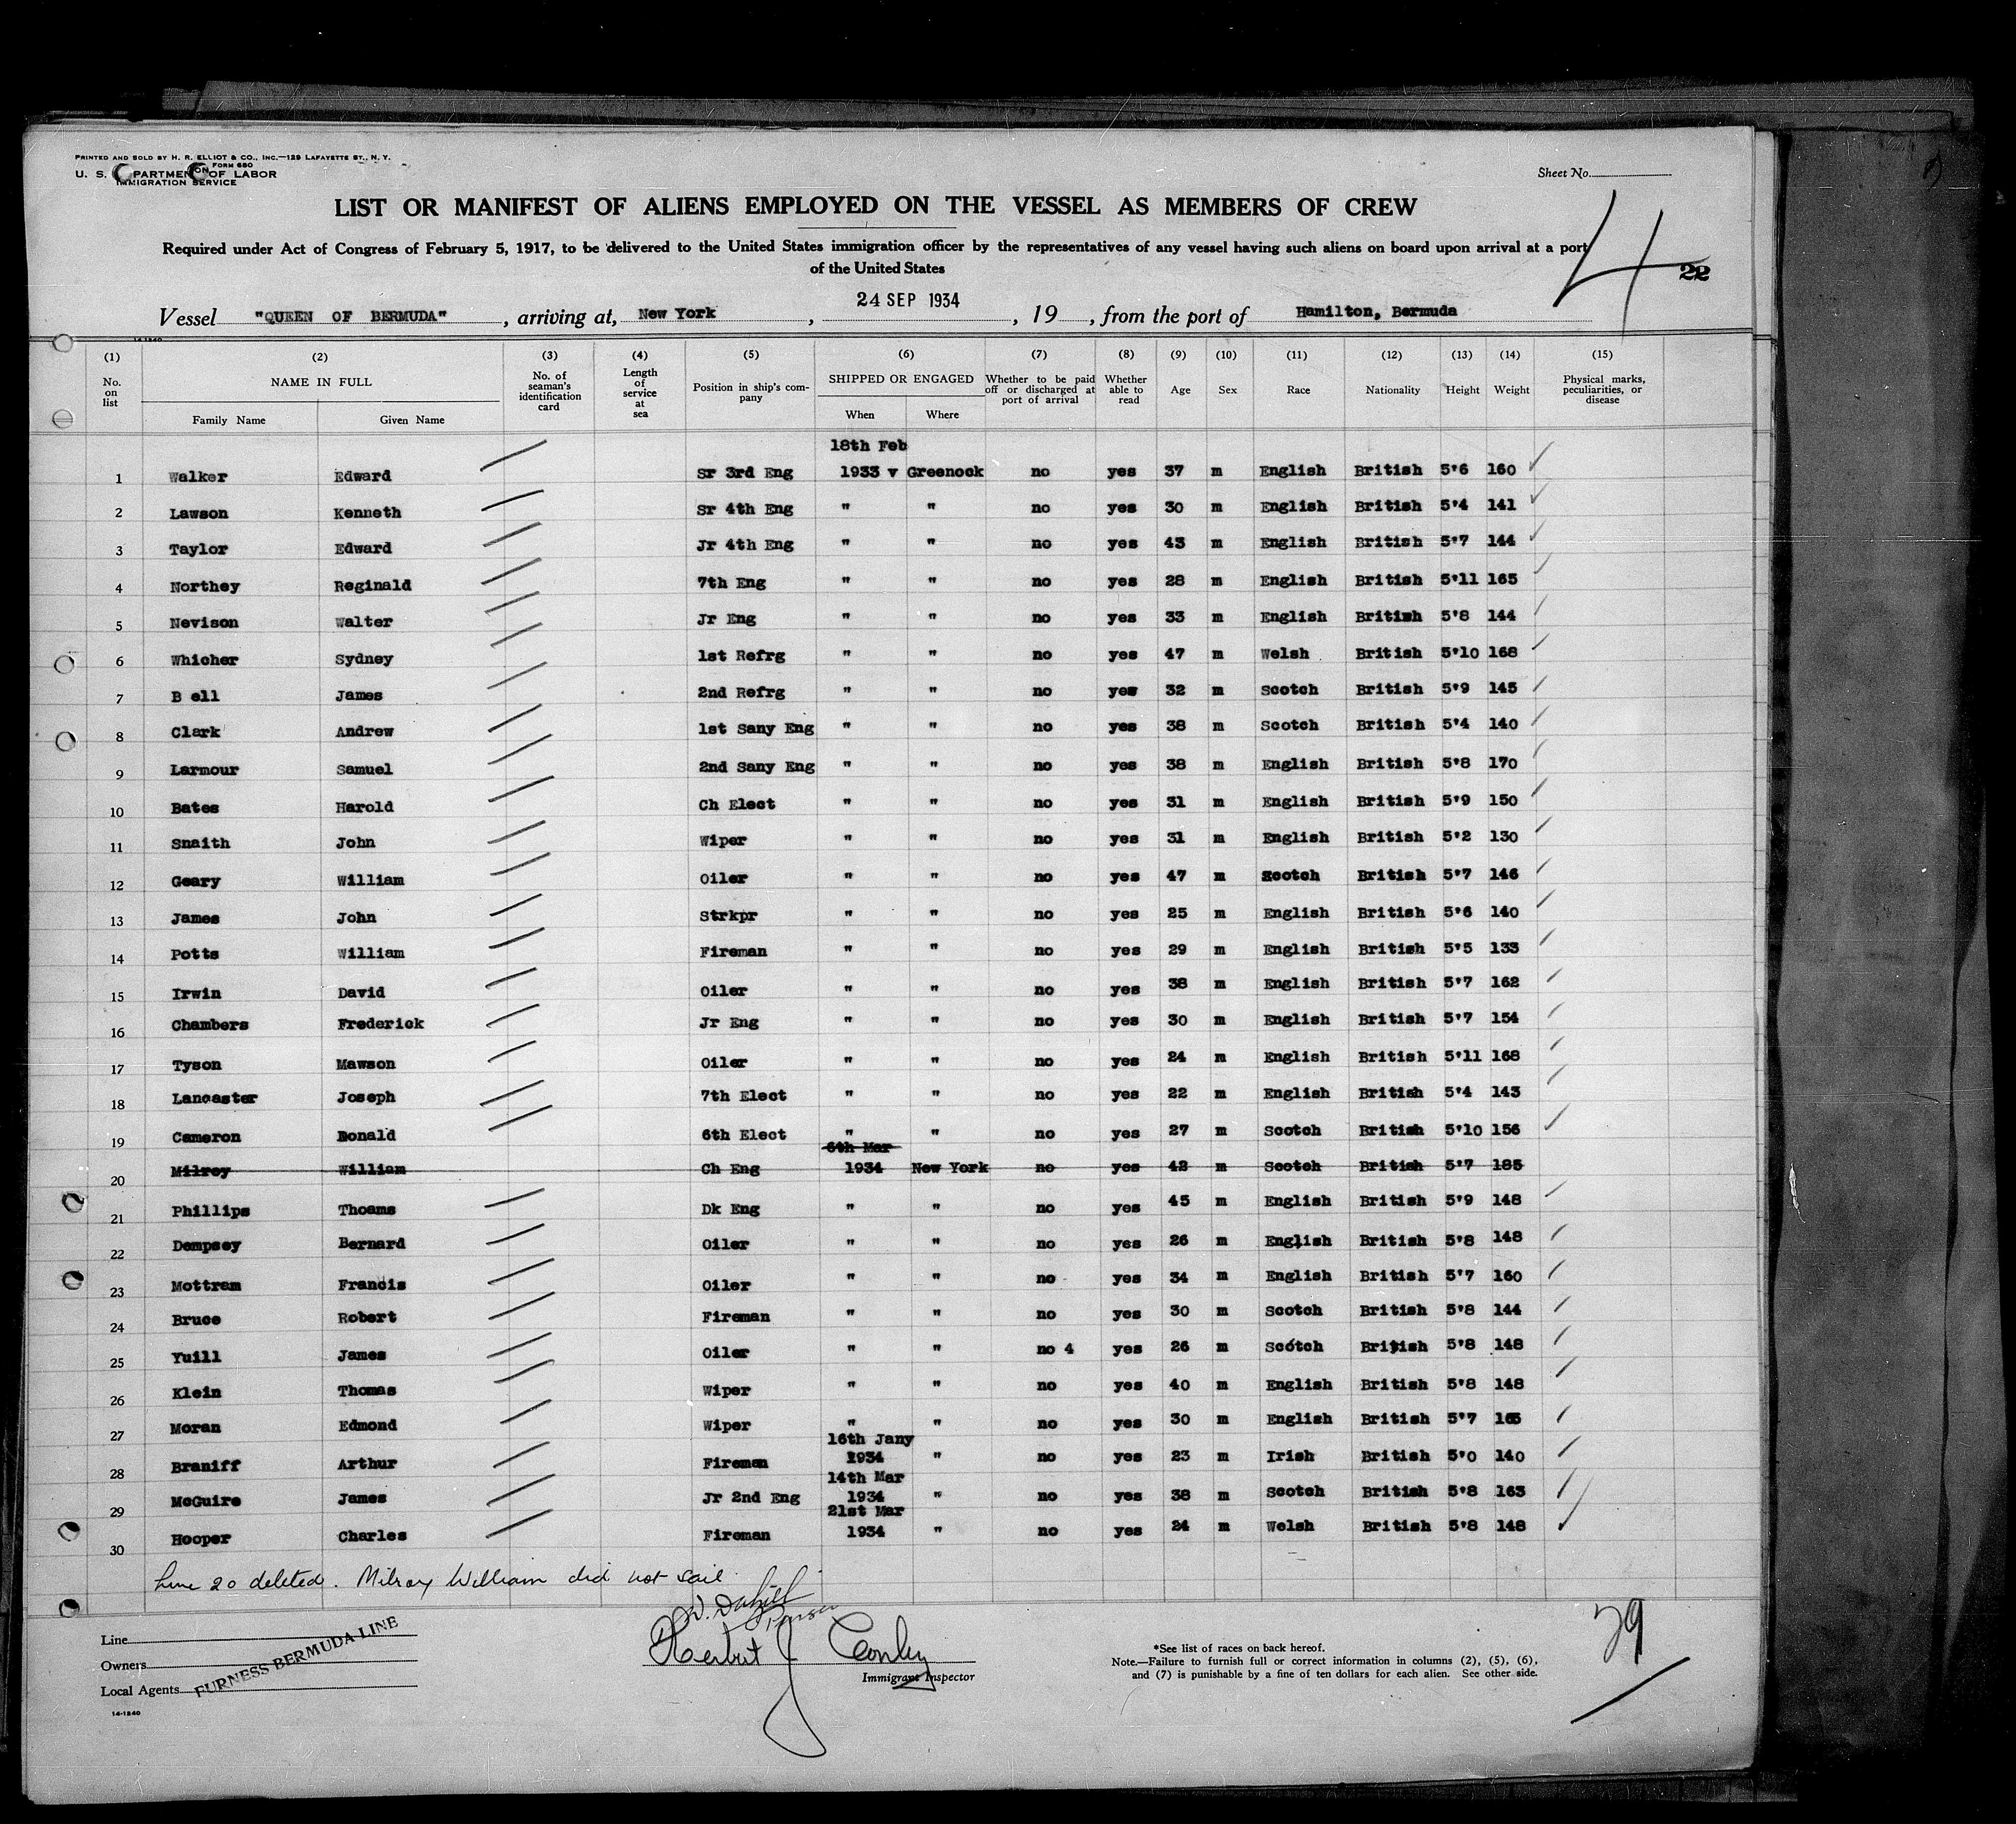 PRINTED AND SOLD BY H. R. ELLIOT & CO., INC.—129 LAFAYETTE ST., N. Y.
FORM 680
U. S. DEPARTMENT OF LABOR
IMMIGRATION SERVICE
Sheet No.
LIST OR MANIFEST OF ALIENS EMPLOYED ON THE VESSEL AS MEMBERS OF CREW
Required under Act of Congress of February 5, 1917, to be delivered to the United States immigration officer by the representatives of any vessel having such aliens on board upon arrival at a port
of the United States
4
22
24 SEP 1934
Vessel "QUEEN OF BERMUDA" , arriving at, New York , , 19 , from the port of Hamilton, Bermuda
14-1240
(1) (2) (3) (4) (5) (6) (7) (8) (9) (10) (11) (12) (13) (14) (15)
No. on list NAME IN FULL Family Name Given Name No. of seaman's identification card Length of service at sea Position in ship's company SHIPPED OR ENGAGED When Where Whether to be paid off or discharged at port of arrival Whether able to read Age Sex Race Nationality Height Weight Physical marks, peculiarities, or disease
18th Feb
1 Walker Edward Sr 3rd Eng 1933 v Greenock no yes 37 m English British 5'6 160
2 Lawson Kenneth Sr 4th Eng " " no yes 30 m English British 5'4 141
3 Taylor Edward Jr 4th Eng " " no yes 43 m English British 5'7 144
4 Northey Reginald 7th Eng " " no yes 28 m English British 5'11 165
5 Nevison Walter Jr Eng " " no yes 33 m English British 5'8 144
6 Whicher Sydney 1st Refrg " " no yes 47 m Welsh British 5'10 168
7 B ell James 2nd Refrg " " no yes 32 m Scotch British 5'9 145
8 Clark Andrew 1st Sany Eng " " no yes 38 m Scotch British 5'4 140
9 Larmour Samuel 2nd Sany Eng " " no yes 38 m English British 5'8 170
10 Bates Harold Ch Elect " " no yes 31 m English British 5'9 150
11 Snaith John Wiper " " no yes 31 m English British 5'2 130
12 Geary William Oiler " " no yes 47 m Scotch British 5'7 146
13 James John Strkpr " " no yes 25 m English British 5'6 140
14 Potts William Fireman " " no yes 29 m English British 5'5 133
15 Irwin David Oiler " " no yes 38 m English British 5'7 162
16 Chambers Frederick Jr Eng " " no yes 30 m English British 5'7 154
17 Tyson Mawson Oiler " " no yes 24 m English British 5'11 168
18 Lancaster Joseph 7th Elect " " no yes 22 m English British 5'4 143
19 Cameron Donald 6th Elect " " no yes 27 m Scotch British 5'10 156
6th Mar
20 Milroy William Ch Eng 1934 New York no yes 42 m Scotch British 5'7 185
21 Phillips Thoams Dk Eng " " no yes 45 m English British 5'9 148
22 Dempsey Bernard Oiler " " no yes 26 m English British 5'8 148
23 Mottram Francis Oiler " " no yes 34 m English British 5'7 160
24 Bruce Robert Fireman " " no yes 30 m Scotch British 5'8 144
25 Yuill James Oiler " " no 4 yes 26 m Scotch British 5'8 148
26 Klein Thomas Wiper " " no yes 40 m English British 5'8 148
27 Moran Edmond Wiper " " no yes 30 m English British 5'7 165
16th Jany
28 Braniff Arthur Fireman 1934 " no yes 23 m Irish British 5'0 140
14th Mar
29 McGuire James Jr 2nd Eng 1934 " no yes 38 m Scotch British 5'8 163
21st Mar
30 Hooper Charles Fireman 1934 " no yes 24 m Welsh British 5'8 148
Line 20 deleted. Milroy William did not sail
Purser
Herbert J Conley
Immigrant Inspector
Line
Owners
Local Agents
FURNESS BERMUDA LINE
14-1240
*See list of races on back hereof.
Note.—Failure to furnish full or correct information in columns (2), (5), (6),
and (7) is punishable by a fine of ten dollars for each alien. See other side.
29